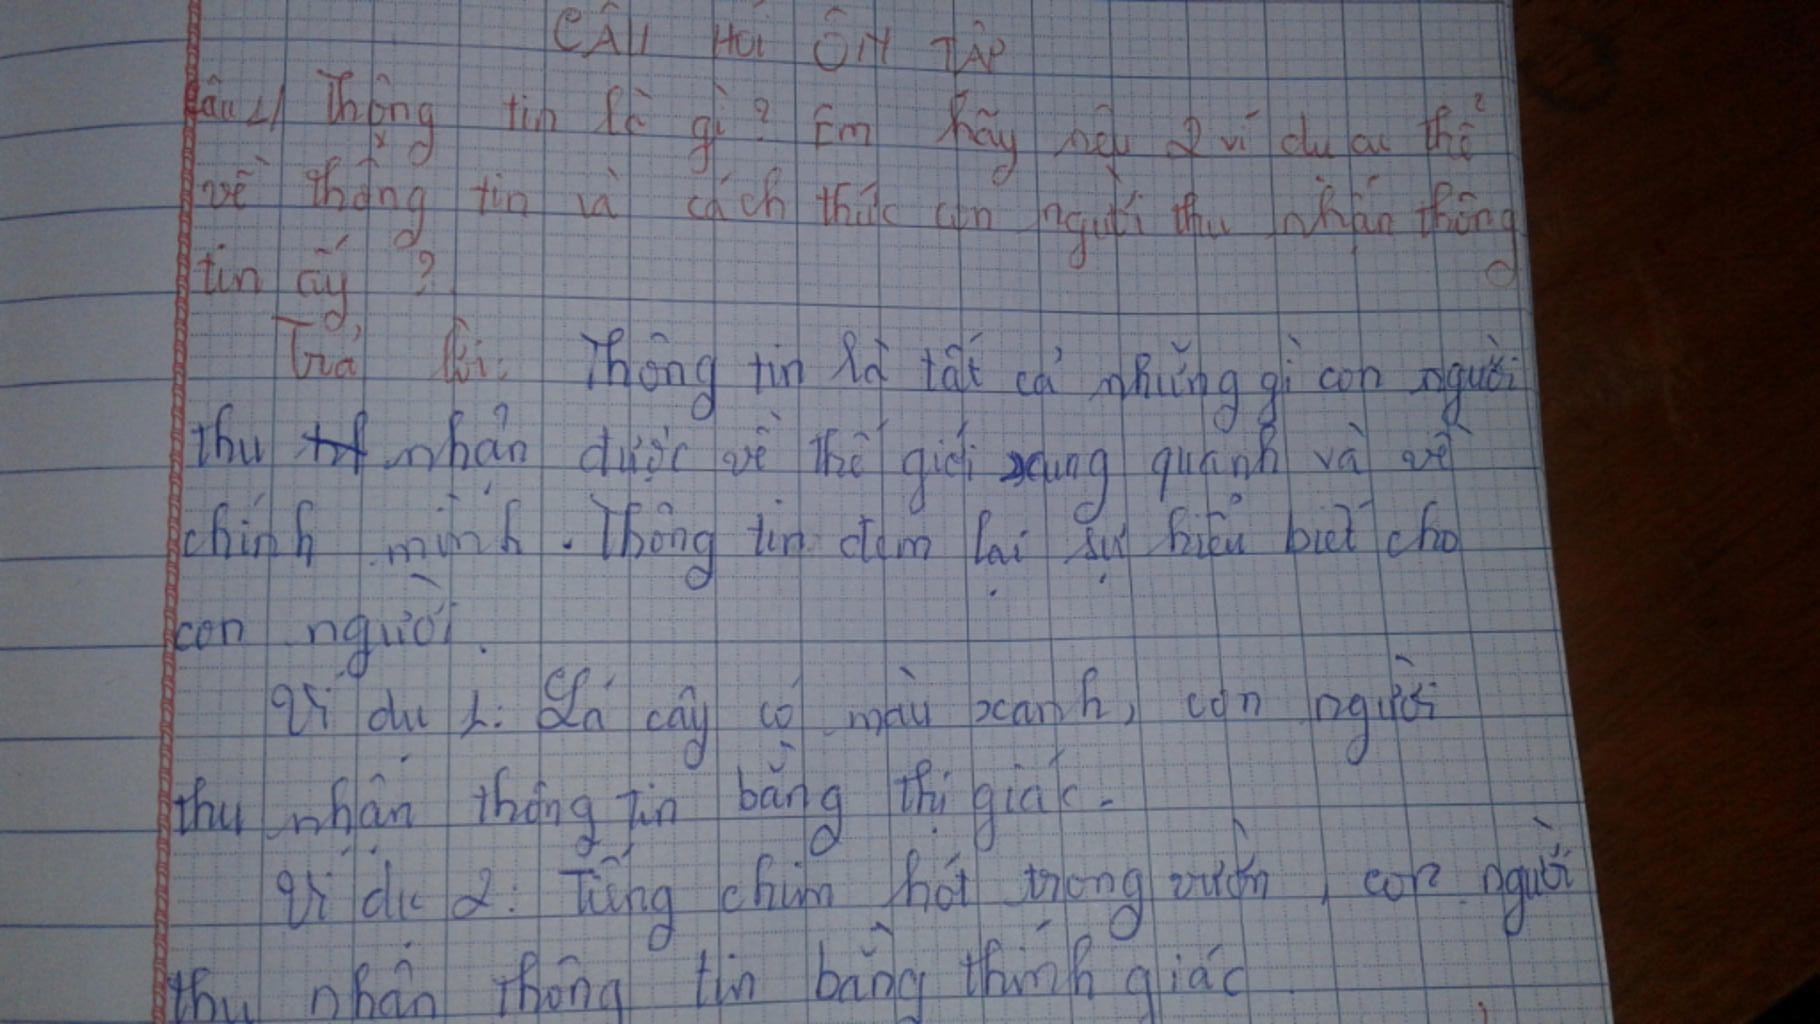 CÂU HỎI ÔN TẬP
Câu 1/ Thông tin là gì? Em hãy nêu 2 ví dụ cụ thể
về thông tin và cách thức con người thu nhận thông
tin ấy?
Trả lời: Thông tin là tất cả những gì con người
thu nhận được về thế giới xung quanh và về
chính mình. Thông tin đem lại sự hiểu biết cho
con người.
Ví dụ 1: Lá cây có màu xanh, con người
thu nhận thông tin bằng thị giác.
Ví dụ 2: Tiếng chim hót trong vườn, con người
thu nhận thông tin bằng thính giác